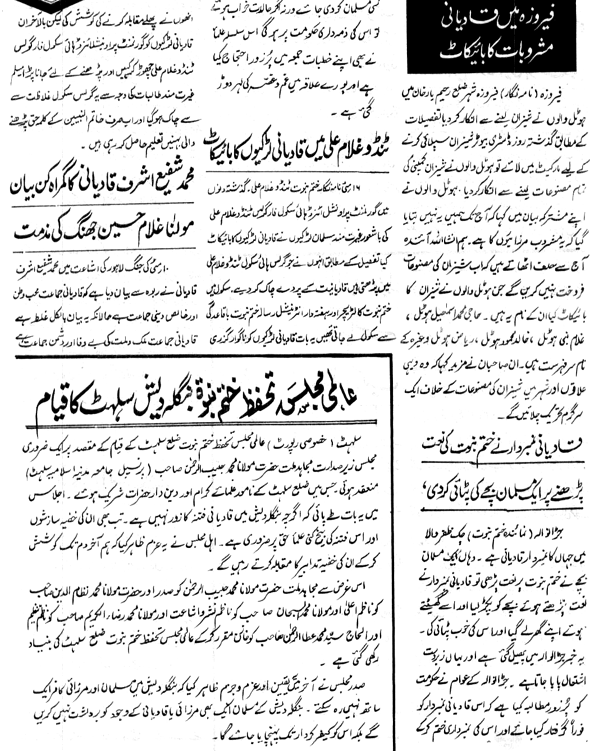 فیروزہ میں قادیانی
مشروبات کا بائیکاٹ
فیروزہ (نامہ نگار) فیروزہ شہر ضلع رحیم یار خان میں
ہوٹل والوں نے شیزان لینے سے انکار کر دیا تفصیلات
کے مطابق گذشتہ روز ڈسٹری بیوٹر شیزان سپلائی کرنے
کے لیے مارکیٹ میں لائے تو ہوٹل والوں نے شیزان کمپنی کی
تمام مصنوعات لینے سے انکار کر دیا۔ ہوٹل والوں نے
اپنے مشترکہ بیان میں کہا کہ آج تک ہمیں یہ نہیں بتایا
گیا کہ یہ مشروب مرزائیوں کا ہے۔ ہم انشاء اللہ آئندہ
آج سے حلف اٹھاتے ہیں کہ اب شیزان کی مصنوعات
فروخت نہیں کریں گے جن ہوٹل والوں نے شیزان کا
بائیکاٹ کیا ان کے نام یہ ہیں۔
غلام نبی ہوٹل ، خالد محمود ہوٹل ، ریاض ہوٹل وغیرہ کے
نام سرفہرست ہیں۔ ان صاحبان نے مزید کہا کہ وہ دیہی
علاقوں اور شہر میں شیزان کی مصنوعات کے خلاف ایک
سرگرم تحریک چلائیں گے۔
قادیانی نمبردار نے ختم نبوت کی نعت
پڑھنے پر ایک مسلمان بچے کی پٹائی کر دی،
جڑانوالہ (نمائندہ ختم نبوت) چک
میں جہاں کا نمبردار قادیانی ہے۔ وہاں ایک مسلمان
بچے نے ختم نبوت پر نعت پڑھی تو قادیانی نمبردار نے
نعت پڑھتے ہوئے بچے کو پکڑ لیا اور اسے گھسیٹتے
ہوئے اپنے گھر لے گیا اور اس کی خوب پٹائی کی۔
یہ خبر جڑانوالہ میں پھیل گئی ہے اور یہاں زبردست
اشتعال پایا جاتا ہے۔ جڑانوالہ کے عوام نے حکومت
سے پُر زور مطالبہ کیا ہے کہ اس قادیانی نمبردار کو
فوراً گرفتار کیا جائے اور اس کی نمبرداری ختم کرکے
کسی مسلمان کو دی جائے ورنہ اگر حالات خراب ہوئے
تو اس کی ذمہ داری حکومت پر ہوگی اس سلسلہ میں علماء
نے بھی اپنے خطبات جمعہ میں پُر زور احتجاج کیا
ہے اور پورے علاقہ میں غم و غصّہ کی لہر دوڑ
گئی ہے۔
ٹنڈو غلام علی میں قادیانی لڑکیوں کا بائیکاٹ
۱۶ مئی نامہ نگار ختم نبوت ٹنڈو غلام علی۔ گذشتہ دنوں
میں گورنمنٹ پراونشل ائزڈ ہائی سکول فار گرلس ٹنڈو غلام علی
کی باشعور غیرت مند مسلمان لڑکیوں نے قادیانی لڑکیوں کا بائیکاٹ
کیا تفصیل کے مطابق انہوں نے جو گرلس ہائی سکول ٹنڈو غلام علی
میں پڑھتی ہیں قادیانیت کے پردے چاک کر دیے۔ سکول میں
ختم نبوت کا لٹریچر اور ہفت روزہ انٹرنیشنل رسالہ ختم نبوت باقاعدگی
سے سکول لے جاتی تھیں یہ بات قادیانی لڑکیوں کو ناگوار گذری
انہوں نے پہلے مقابلہ کرنے کی کوشش کی لیکن بالآخر ان
قادیانی لڑکیوں کو گورنمنٹ پراونشلائزڈ ہائی سکول فار گرلس
ٹنڈو غلام علی چھوڑ گئیں اور پڑھنے کے لیے جانا پڑا مسلم
غیرت مند طالبات کی وجہ سے یہ گرلس سکول غلاظت سے
پاک ہو گیا اور اب صرف خاتم النبیین کے کلمہ حق پڑھنے
والی بہنیں تعلیم حاصل کر رہی ہیں۔
محمد شفیع اشرف قادیانی کا گمراہ کن بیان
مولانا غلام حسین جھنگ کی مذمت
۱۰ مئی کی جنگ لاہور کی اشاعت میں محمد شفیع اشرف
قادیانی نے ربوہ سے بیان دیا ہے کہ قادیانی جماعت محب وطن
اور خالص دینی جماعت ہے حالانکہ یہ بیان بالکل غلط ہے
قادیانی جماعت ملک و ملت کی بے وفا اور دشمن جماعت ہے
عالمی مجلس تحفظ ختم نبوۃ بنگلہ دیش سلہٹ کا قیام
سلہٹ (خصوصی رپورٹ) عالمی مجلس تحفظ ختم نبوت ضلع سلہٹ کے قیام کے مقصد پر ایک ضروری
مجلس زیر صدارت مجاہد ملت حضرت مولانا محمد حبیب الرحمٰن صاحب (پرنسپل جامعہ مدنیہ اسلامیہ سلہٹ)
منعقد ہوئی جس میں ضلع سلہٹ کے نامور علمائے کرام اور دین دار حضرات شریک ہوئے۔ اجلاس
میں یہ بات طے پائی کہ اگرچہ بنگلہ دیش میں قادیانی فتنہ کا زور نہیں ہے۔ تب بھی ان کی خفیہ سازشوں
اور اس فتنہ کی بیخ کنی علماء حق پر ضروری ہے۔ اہل مجلس نے یہ عزم ظاہر کیا کہ ہم آخر دم تک کوشش
کرکے ان کی خفیہ تدابیر کا مقابلہ کرتے رہیں گے۔
اس غرض سے مجاہد ملت حضرت مولانا محمد حبیب الرحمٰن کو صدر اور حضرت مولانا محمد نظام الدین صاحب
کو ناظم اعلیٰ اور مولانا محمد سبحان صاحب کو ناظم نشر و اشاعت اور مولانا محمد رضاء الکریم صاحب کو ناظم تنظیم
اور الحاج سید محمد عطاء الرحمٰن صاحب کو خازن مقرر کرکے عالمی مجلس تحفظ ختم نبوت ضلع سلہٹ کی بنیاد
رکھی گئی ہے۔
صدر مجلس نے آخر تک یقین اور عزم و جزم ظاہر کیا کہ بنگلہ دیش میں مسلمان اور مرزائی کافر ایک
ساتھ نہیں رہ سکتے۔ بنگلہ دیش کے مسلمان ایک بھی مرزائی یا قادیانی کے وجود کو برداشت نہیں کریں
گے بلکہ اس کو کیفر کردار تک پہنچایا جائے گا۔